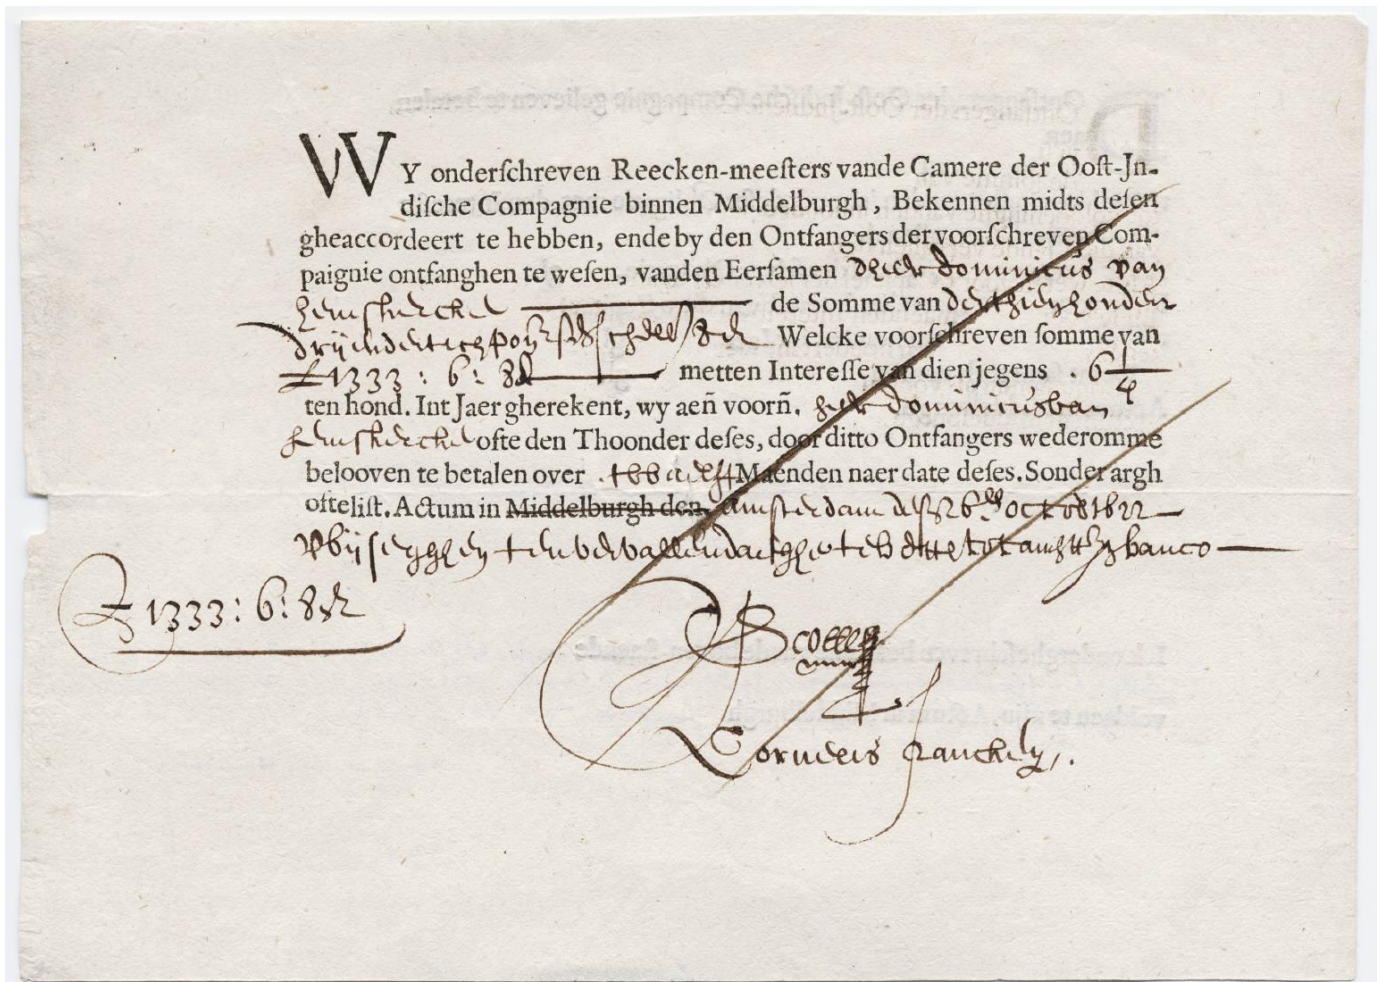 WY onderſchreven Reecken-meeſters vande Camere der Ooſt-Jn-
diſche Compagnie binnen Middelburgh, Bekennen midts deſen
gheaccordeert te hebben, ende by den Ontfangers der voorſchreven Com-
paignie ontfanghen te weſen, vanden Eerſamen dheer dominicus van
hemskercke de Somme van derthien honder
drijendertich pont ses sch Welcke voorſchreven ſomme van
£ 1333 : 6 : 8 metten Intereſſe van dien jegens . 6 1/4
ten hond. Int Jaer gherekent, wy aen̄ voorn̄. heer dominicus van
heemskercke ofte den Thoonder deſes, door ditto Ontfangers wederomme
belooven te betalen over twaelff Maenden naer date deſes. Sonder argh
ofte liſt. Actum in Middelburgh den Amsterdam desen 26en octob 1622
banco
£ 1333 : 6 : 8
Cornelis